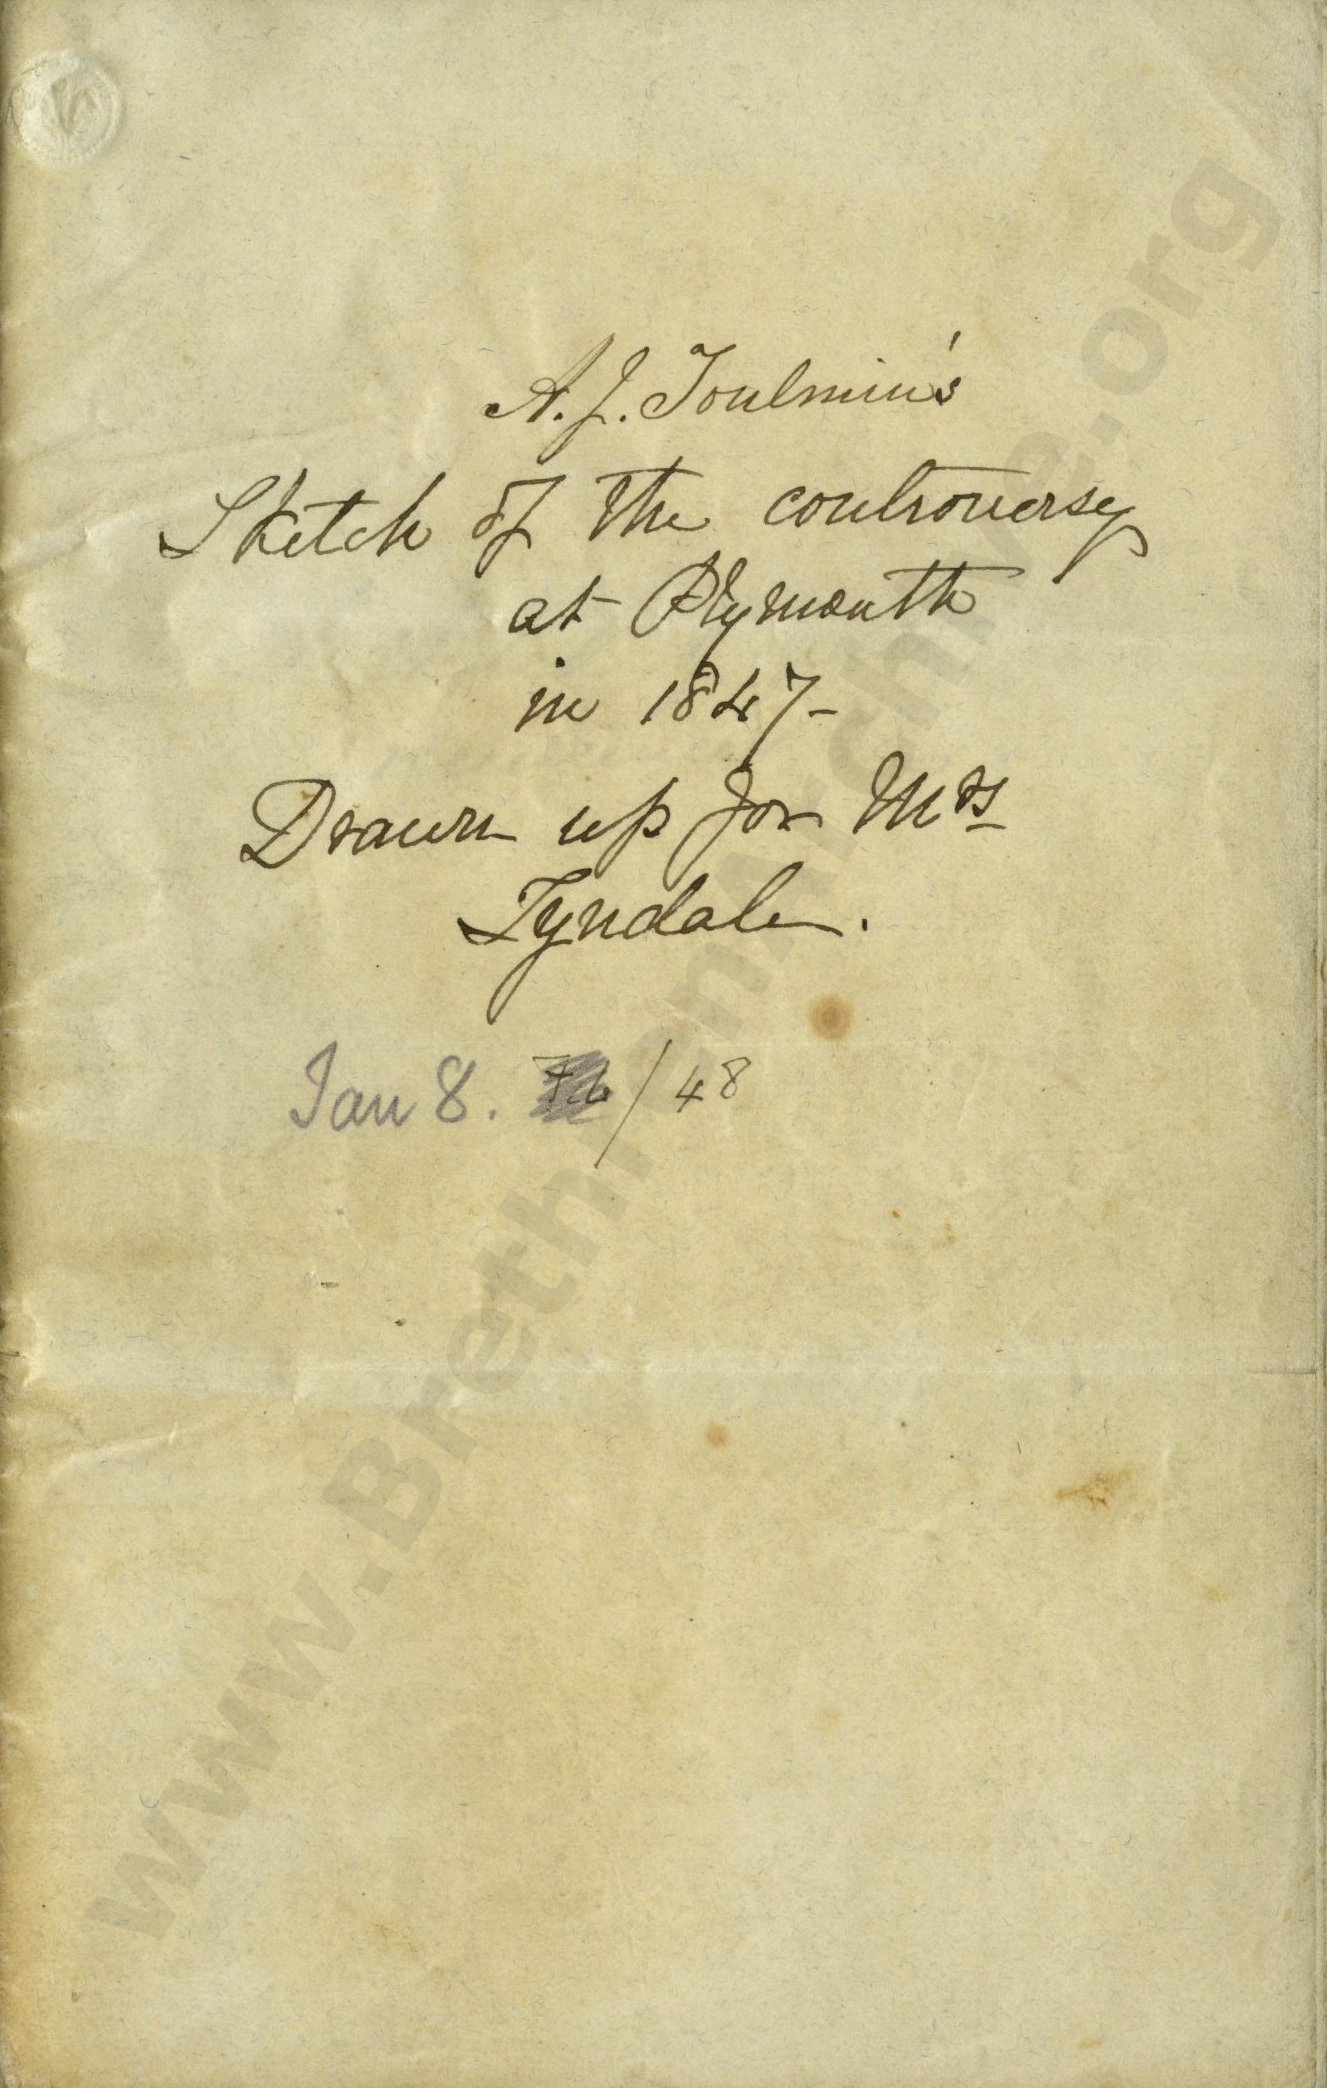 A. J. Toulmin's
Sketch of the controversy
at Plymouth
in 1847-
Drawn up for Mrs
Tyndale.
Jan 8. /48
www.BrethrenArchive.org